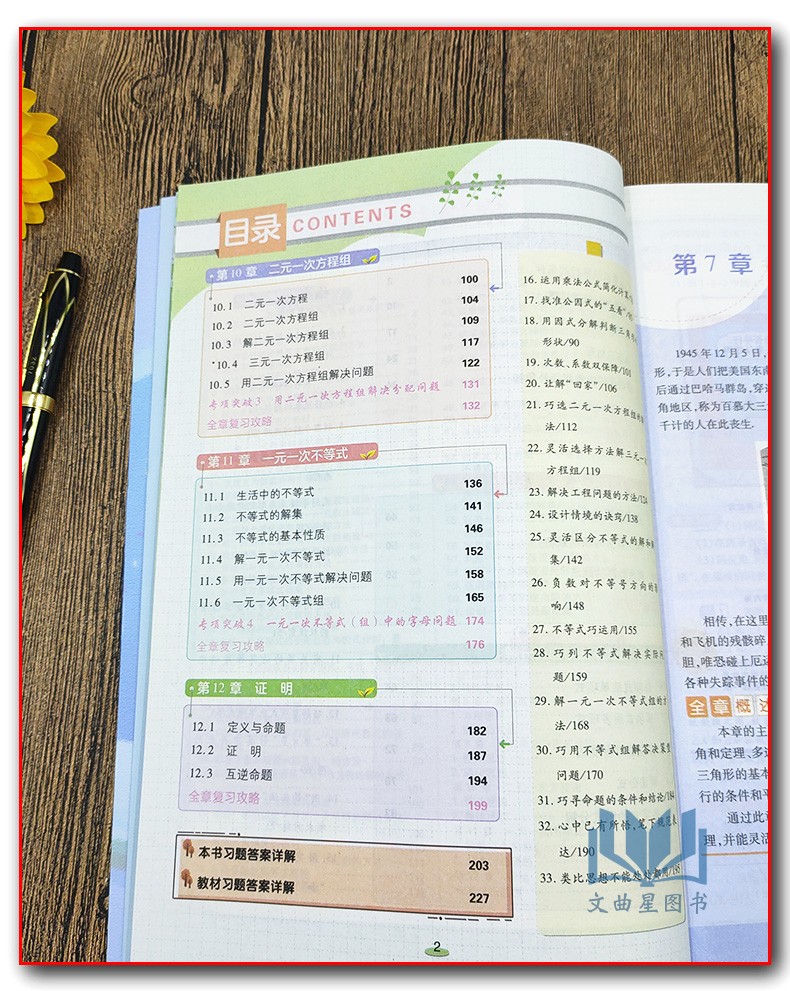 目录 CONTENTS
第10章 二元一次方程组
10.1 二元一次方程 100
10.2 二元一次方程组 104
10.3 解二元一次方程组 109
*10.4 三元一次方程组 117
10.5 用二元一次方程组解决问题 122
专项突破3 用二元一次方程组解决分配问题 131
全章复习攻略 132
第11章 一元一次不等式
11.1 生活中的不等式 136
11.2 不等式的解集 141
11.3 不等式的基本性质 146
11.4 解一元一次不等式 152
11.5 用一元一次不等式解决问题 158
11.6 一元一次不等式组 165
专项突破4 一元一次不等式(组)中的字母问题 174
全章复习攻略 176
第12章 证明
12.1 定义与命题 182
12.2 证明 187
12.3 互逆命题 194
全章复习攻略 199
本书习题答案详解 203
教材习题答案详解 227
2
16. 运用乘法公式简化计算
17. 找准公因式的“五看”
18. 用因式分解判断三角
形状/90
19. 次数、系数双保障/101
20. 让解“回家”/106
21. 巧选二元一次方程组
法/112
22. 灵活选择方法解三元一
方程组/119
23. 解决工程问题的方法/124
24. 设计情境的诀窍/138
25. 灵活区分不等式的解和
集/142
26. 负数对不等号方向的
响/148
27. 不等式巧运用/155
28. 巧列不等式解决实际问
题/159
29. 解一元一次不等式组的方
法/168
30. 巧用不等式组解答决策
问题/170
31. 巧寻命题的条件和结论/184
32. 心中已有所悟,笔下规范表
达/190
33. 类比思想不能处处
第7章
1945年12月5日,
形,于是人们把美国东南
后通过巴哈马群岛,穿
角地区,称为百慕大三
千计的人在此丧生.
相传,在这里
和飞机的残骸碎
胆,唯恐碰上厄运
各种失踪事件的
全章概述
本章的主
角和定理、多
三角形的基本
行的条件和平
通过此
理,并能灵活
文曲星图书